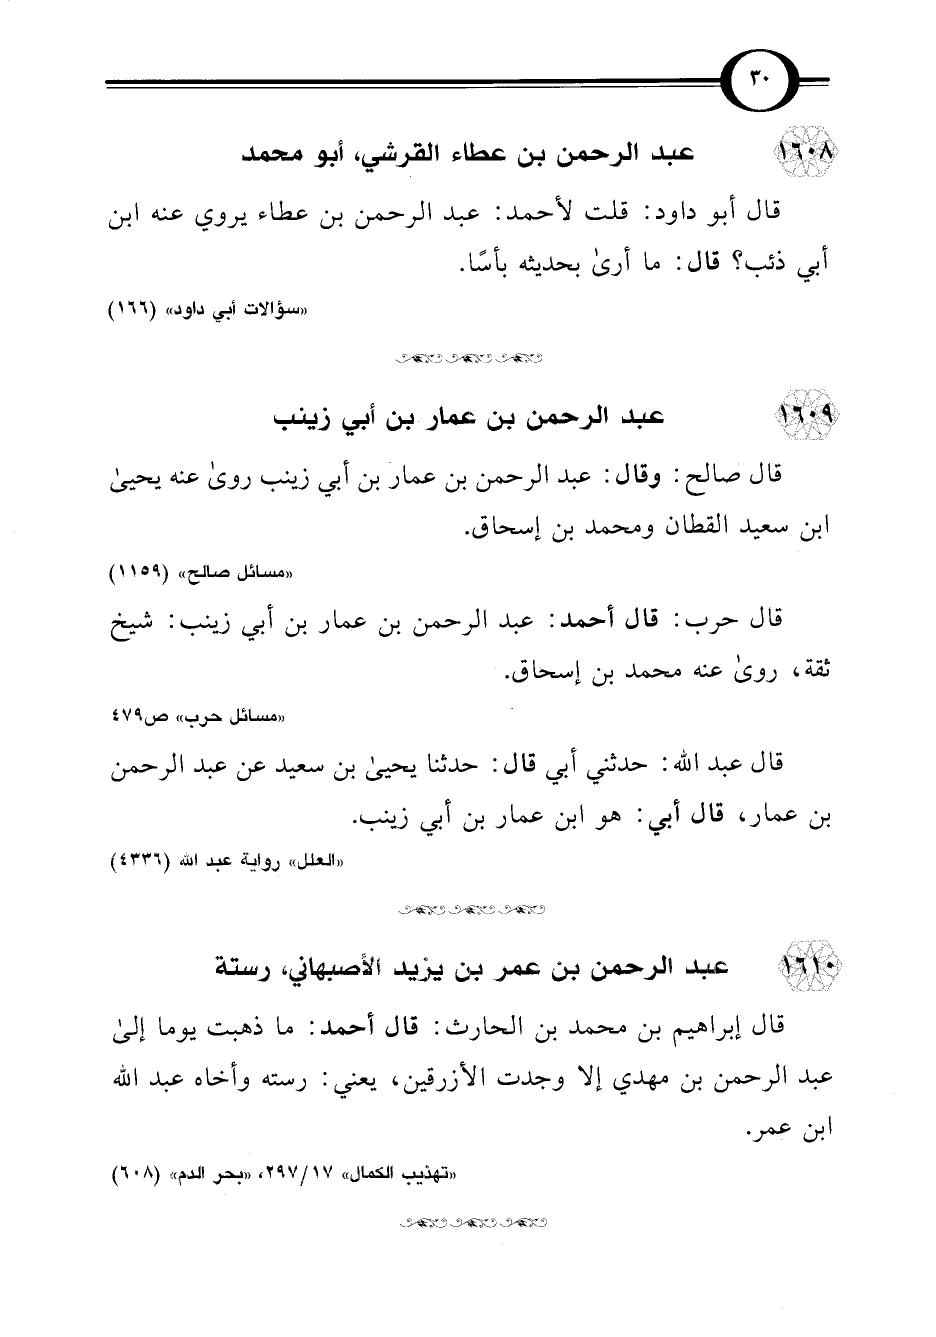 ٣٠
١٦٠٨ عبد الرحمن بن عطاء القرشي، أبو محمد
قال أبو داود: قلت لأحمد: عبد الرحمن بن عطاء يروي عنه ابن
أبي ذئب؟ قال: ما أرىٰ بحديثه بأسًا.
«سؤالات أبي داود» (١٦٦)
١٦٠٩ عبد الرحمن بن عمار بن أبي زينب
قال صالح: وقال: عبد الرحمن بن عمار بن أبي زينب روىٰ عنه يحيىٰ
ابن سعيد القطان ومحمد بن إسحاق.
«مسائل صالح» (١١٥٩)
قال حرب: قال أحمد: عبد الرحمن بن عمار بن أبي زينب: شيخ
ثقة، روىٰ عنه محمد بن إسحاق.
«مسائل حرب» ص٤٧٩
قال عبد الله: حدثني أبي قال: حدثنا يحيىٰ بن سعيد عن عبد الرحمن
بن عمار، قال أبي: هو ابن عمار بن أبي زينب.
«العلل» رواية عبد الله (٤٣٣٦)
١٦١٠ عبد الرحمن بن عمر بن يزيد الأصبهاني، رستة
قال إبراهيم بن محمد بن الحارث: قال أحمد: ما ذهبت يوما إلىٰ
عبد الرحمن بن مهدي إلا وجدت الأزرقين، يعني: رسته وأخاه عبد الله
ابن عمر.
«تهذيب الكمال» ٢٩٧/١٧، «بحر الدم» (٦٠٨)